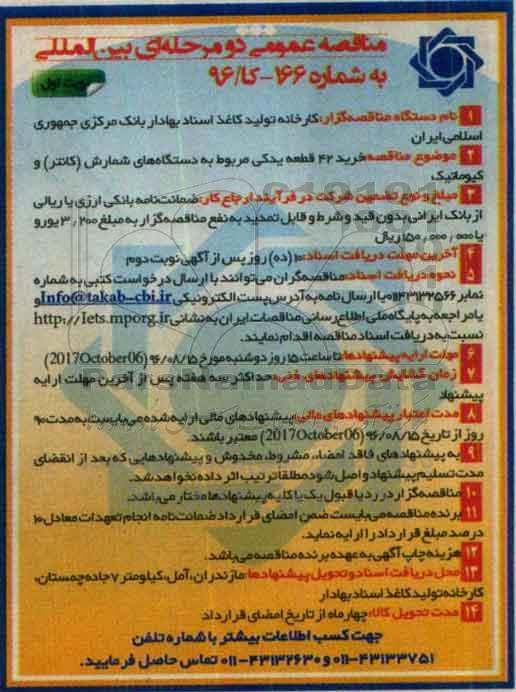 مناقصه عمومی دو مرحله‌ای بین‌المللی
به شماره ۱۶۶-کا/۹۶
نوبت اول
۱ نام دستگاه مناقصه‌گزار: کارخانه تولید کاغذ اسناد بهادار بانک مرکزی جمهوری
اسلامی ایران
۲ موضوع مناقصه: خرید ۴۲ قطعه یدکی مربوط به دستگاه‌های شمارش (کانتر) و
کیوماتیک
۳ مبلغ و نوع تضمین شرکت در فرآیند ارجاع کار: ضمانت‌نامه بانکی ارزی یا ریالی
از بانک ایرانی بدون قید و شرط و قابل تمدید به نفع مناقصه‌گزار به مبلغ ۳٫۲۰۰ یورو
یا ۱۵۰٫۰۰۰٫۰۰۰ ریال
۴ آخرین مهلت دریافت اسناد: ۱۰ (ده) روز پس از آگهی نوبت دوم
۵ نحوه دریافت اسناد: مناقصه‌گران می‌توانند با ارسال درخواست کتبی به شماره
نمابر ۰۱۱۴۳۱۳۲۵۶۶ یا ارسال نامه به آدرس پست الکترونیکی Info@takab-cbi.ir و
یا مراجعه به پایگاه ملی اطلاع رسانی مناقصات ایران به نشانی http://Iets.mporg.ir
نسبت به دریافت اسناد مناقصه اقدام نمایند.
۶ مهلت ارایه پیشنهادها: تا ساعت ۱۵ روز دوشنبه مورخ ۹۶/۰۸/۱۵ (2017October06)
۷ زمان گشایش پیشنهادهای فنی: حداکثر سه هفته پس از آخرین مهلت ارایه
پیشنهاد
۸ مدت اعتبار پیشنهادهای مالی: پیشنهادهای مالی ارایه شده می‌بایست به مدت ۹۰
روز از تاریخ ۹۶/۰۸/۱۵ (2017October06) معتبر باشند.
۹ به پیشنهادهای فاقد امضاء، مشروط، مخدوش و پیشنهادهایی که بعد از انقضای
مدت تسلیم پیشنهاد واصل شود مطلقا ترتیب اثر داده نخواهد شد.
۱۰ مناقصه‌گزار در رد یا قبول یک یا کلیه پیشنهادها مختار می‌باشد.
۱۱ برنده مناقصه می‌بایست ضمن امضای قرارداد ضمانت‌نامه انجام تعهدات معادل ۱۰
درصد مبلغ قرارداد را ارایه نماید.
۱۲ هزینه چاپ آگهی به عهده برنده مناقصه می‌باشد.
۱۳ محل دریافت اسناد و تحویل پیشنهادها: مازندران، آمل، کیلومتر ۷ جاده چمستان،
کارخانه تولید کاغذ اسناد بهادار
۱۴ مدت تحویل کالا: چهار ماه از تاریخ امضای قرارداد
جهت کسب اطلاعات بیشتر با شماره تلفن
۰۱۱-۴۳۱۳۳۷۵۱ و ۰۱۱-۴۳۱۳۲۶۳۰ تماس حاصل فرمایید.